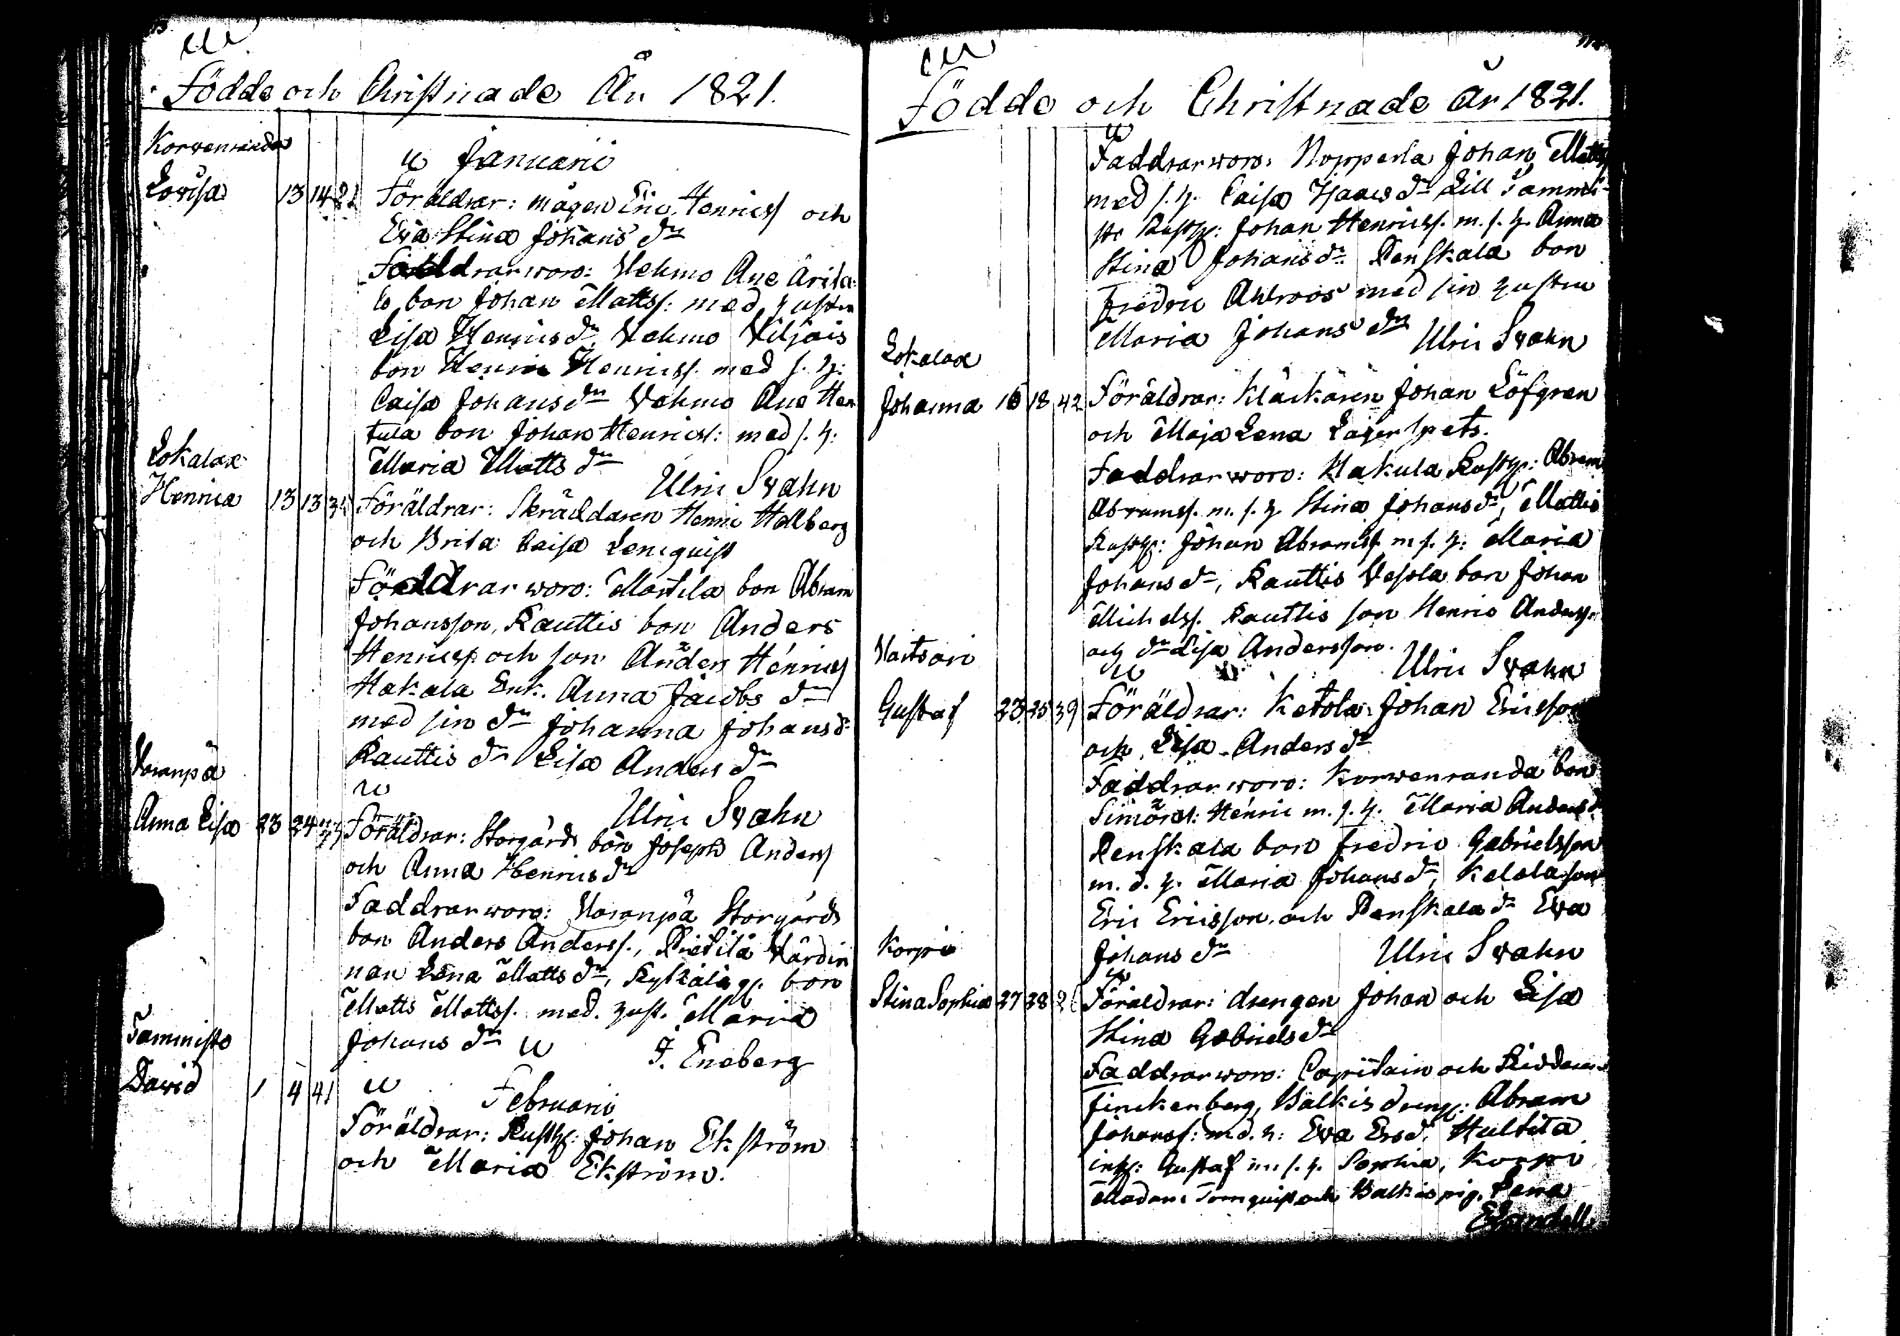 Födde och Christnade År 1821.
Korvenranda
Januarii
Lovisa 13 14 21 Föräldrar: mågen Eric Henricss och
Eva Stina Johans dr
Faddrar woro: Vehmo Ane Ärila
bon Johan Mattss: med hustru
Lisa Henrics dr, Vehmo Viljais
bon Henric Henricss. med s. h:
Caisa Johans dr Vehmo Ane Hen
tula bon Johan Henricss: med s. h:
Maria Matts dr
Ulric Svahn
Lokalax
Henrica 13 13 34 Föräldrar: Skräddaren Henric Hallberg
och Brita Caisa Lencquist
Faddrar woro: Mattila bon Abram
Johansson, Rauttis bon Anders
Henricss och son Anders Henricss
Hakala Enk. Anna Jacobs dr
med sin dr Johanna Johans dr
Rauttis dr Lisa Anders dr
Ulric Svahn
Varanpä
Anna Lisa 23 24 Föräldrar: Storgårds bon Joseph Anderss
och Anna Henrics dr
Faddrar woro: Varanpä Storgårds
bon Anders Anderss., Prettilä Värdin
nan Lena Matts dr, bon
Matts Mattss. med hust. Maria
Johans dr
I. Eneberg
Februarii
Taministo
David 1 4 41
Föräldrar: Rusth: Johan Ekström
och Maria Ekström.
Födde och Christnade År 1821.
Faddrar woro: Nopperla Johan Mattss
med s. h. Caisa Isaacs dr Lill Tammi
sto Rusth: Johan Henricss. m. s. h. Anna
Stina Johans dr. Penskala bon
Fredric Ahlroos med sin hustru
Maria Johans dr
Ulric Svahn
Lokalax
Johanna 16 18 42 Föräldrar: Klåckaren Johan Löfgren
och Maja Lena Lagerspets.
Faddrar woro: Hakula Rusth: Abram
Abramss. m. s. h Stina Johans dr, Mattis
Rusth: Johan Abramss m. s. h: Maria
Johans dr, Rauttis Vesola bon Johan
Michelss. Rauttis son Henric Anderss.
och dr Lisa Andersson.
Ulric Svahn
Vartsari
Gustaf 23 25 39 Föräldrar: Ketola Johan Ericsson
och Lisa Anders dr
Faddrar woro: Korwenranda bon
Simons: Henric m. s. h. Maria Anders dr
Penskala bon Fredric Gabrielsson
m. s. h. Maria Johans dr, Ketola son
Eric Ericsson och Penskala dr Eva
Johans dr
Ulric Svahn
Korpi
Stina Sophia 27 28 Föräldrar: drengen Johan och Lisa
Stina Gabriels dr
Faddrar woro: Capitain och Riddaren
Finckenberg, Balkis dreng: Abram
Johanss: m. s. h: Eva Ersd. Hulbita
inh: Gustaf m. s. h. Sophia, Korpi
Madam Tornquist och Balkis pig. Lena